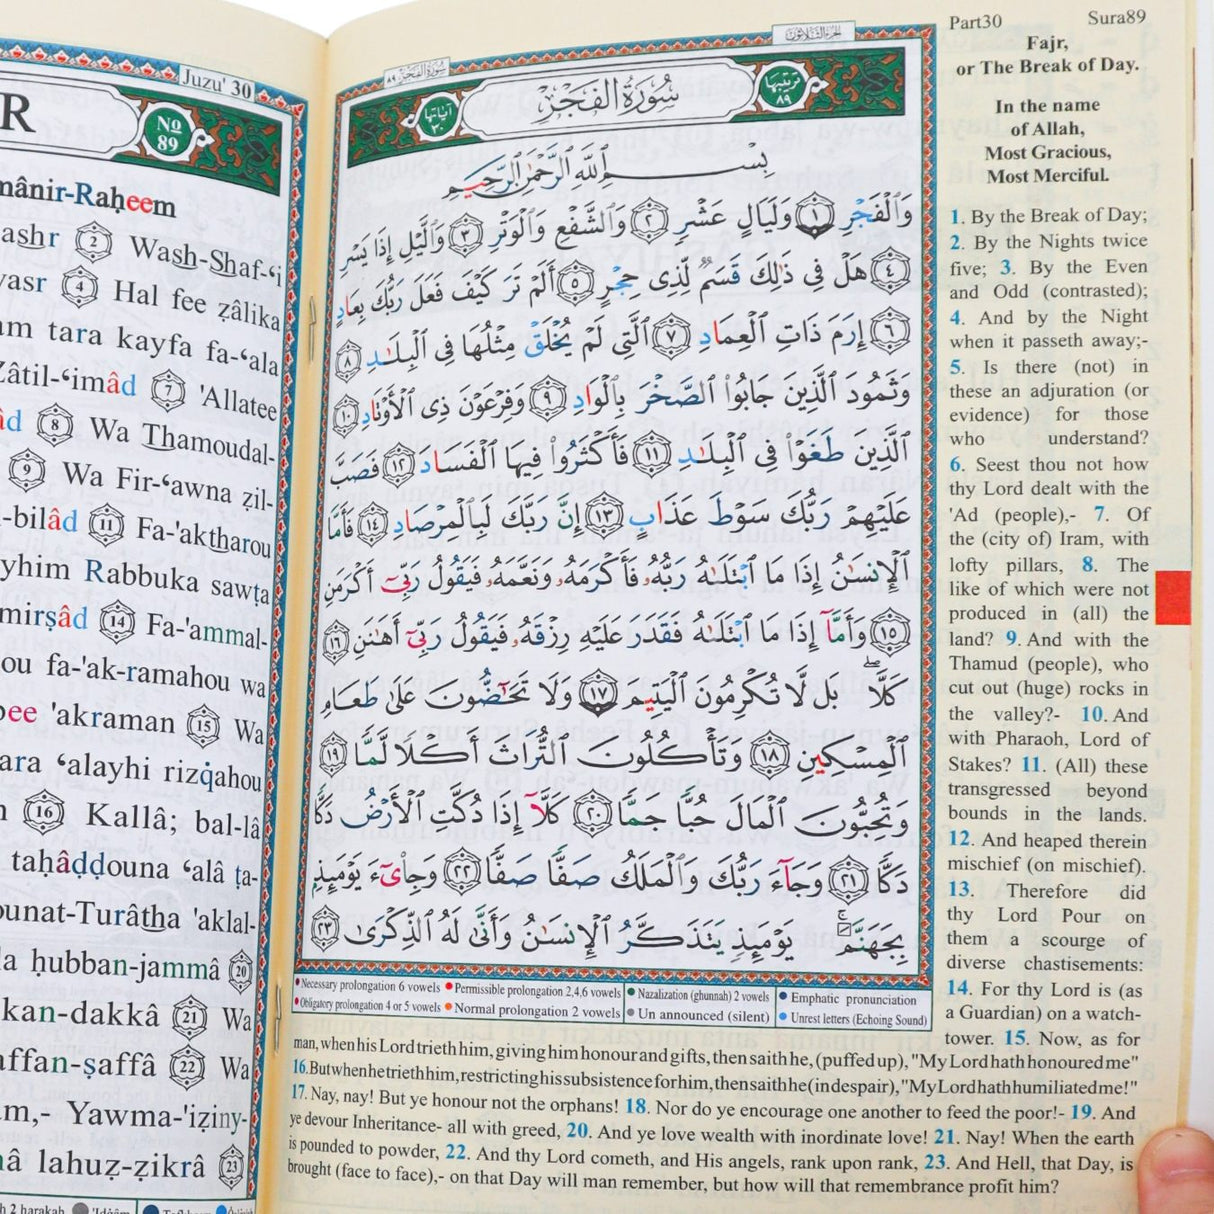 Juzu' 30
R
No
89
mânir-Raheem
ashr 2 Wash-Shaf-‘i
yasr 4 Hal fee zâlika
am tara kayfa fa-‘ala
Zâtil-‘imâd 7 'Allatee
âd 8 Wa Thamoudal-
9 Wa Fir-‘awna zil-
l-bilâd 11 Fa-'aktharou
yhim Rabbuka sawṭa
mirṣâd 14 Fa-'ammal-
ou fa-'ak-ramahou wa
bee 'akraman 15 Wa
ara ‘alayhi rizqahou
n 16 Kallâ; bal-lâ
taḥâḍḍouna ‘alâ ṭa-
ounat-Turâtha 'aklal-
la ḥubban-jammâ 20
kan-dakkâ 21 Wa
affan-ṣaffâ 22 Wa
am,- Yawma-'iẓiny-
nâ lahuẓ-ẓikrâ 23
h 2 harakah
سورة الفجر ٨٩
الجزء الثلاثون
آياتها
٣٠
سُورَةُ الْفَجْرِ
ترتيبها
٨٩
بِسْمِ اللَّهِ الرَّحْمَٰنِ الرَّحِيمِ
وَالْفَجْرِ ١ وَلَيَالٍ عَشْرٍ ٢ وَالشَّفْعِ وَالْوَتْرِ ٣ وَاللَّيْلِ إِذَا يَسْرِ
٤ هَلْ فِي ذَٰلِكَ قَسَمٌ لِّذِي حِجْرٍ ٥ أَلَمْ تَرَ كَيْفَ فَعَلَ رَبُّكَ بِعَادٍ
٦ إِرَمَ ذَاتِ الْعِمَادِ ٧ الَّتِي لَمْ يُخْلَقْ مِثْلُهَا فِي الْبِلَٰدِ ٨
وَثَمُودَ الَّذِينَ جَابُوا الصَّخْرَ بِالْوَادِ ٩ وَفِرْعَوْنَ ذِي الْأَوْتَادِ ١٠
الَّذِينَ طَغَوْا فِي الْبِلَٰدِ ١١ فَأَكْثَرُوا فِيهَا الْفَسَادَ ١٢ فَصَبَّ
عَلَيْهِمْ رَبُّكَ سَوْطَ عَذَابٍ ١٣ إِنَّ رَبَّكَ لَبِالْمِرْصَادِ ١٤ فَأَمَّا
الْإِنسَٰنُ إِذَا مَا ابْتَلَىٰهُ رَبُّهُ فَأَكْرَمَهُ وَنَعَّمَهُ فَيَقُولُ رَبِّي أَكْرَمَنِ
١٥ وَأَمَّا إِذَا مَا ابْتَلَىٰهُ فَقَدَرَ عَلَيْهِ رِزْقَهُ فَيَقُولُ رَبِّي أَهَٰنَنِ ١٦
كَلَّا ۖ بَل لَّا تُكْرِمُونَ الْيَتِيمَ ١٧ وَلَا تَحَٰضُّونَ عَلَىٰ طَعَامِ
الْمِسْكِينِ ١٨ وَتَأْكُلُونَ التُّرَاثَ أَكْلًا لَّمًّا ١٩
وَتُحِبُّونَ الْمَالَ حُبًّا جَمًّا ٢٠ كَلَّا إِذَا دُكَّتِ الْأَرْضُ دَكًّا
دَكًّا ٢١ وَجَاءَ رَبُّكَ وَالْمَلَكُ صَفًّا صَفًّا ٢٢ وَجِايءَ يَوْمَئِذٍ
بِجَهَنَّمَ ۚ يَوْمَئِذٍ يَتَذَكَّرُ الْإِنسَٰنُ وَأَنَّىٰ لَهُ الذِّكْرَىٰ ٢٣
Necessary prolongation 6 vowels Permissible prolongation 2,4,6 vowels Nazalization (ghunnah) 2 vowels Emphatic pronunciation
Obligatory prolongation 4 or 5 vowels Normal prolongation 2 vowels Un announced (silent) Unrest letters (Echoing Sound)
Part30 Sura89
Fajr,
or The Break of Day.
In the name
of Allah,
Most Gracious,
Most Merciful.
1. By the Break of Day;
2. By the Nights twice
five; 3. By the Even
and Odd (contrasted);
4. And by the Night
when it passeth away;-
5. Is there (not) in
these an adjuration (or
evidence) for those
who understand?
6. Seest thou not how
thy Lord dealt with the
'Ad (people),- 7. Of
the (city of) Iram, with
lofty pillars, 8. The
like of which were not
produced in (all) the
land? 9. And with the
Thamud (people), who
cut out (huge) rocks in
the valley?- 10. And
with Pharaoh, Lord of
Stakes? 11. (All) these
transgressed beyond
bounds in the lands.
12. And heaped therein
mischief (on mischief).
13. Therefore did
thy Lord Pour on
them a scourge of
diverse chastisements:
14. For thy Lord is (as
a Guardian) on a watch-
tower. 15. Now, as for
man, when his Lord trieth him, giving him honour and gifts, then saith he, (puffed up), "My Lord hath honoured me"
16. But when he trieth him, restricting his subsistence for him, then saith he (in despair), "My Lord hath humiliated me!"
17. Nay, nay! But ye honour not the orphans! 18. Nor do ye encourage one another to feed the poor!- 19. And
ye devour Inheritance- all with greed, 20. And ye love wealth with inordinate love! 21. Nay! When the earth
is pounded to powder, 22. And thy Lord cometh, and His angels, rank upon rank, 23. And Hell, that Day, is
brought (face to face),- on that Day will man remember, but how will that remembrance profit him?